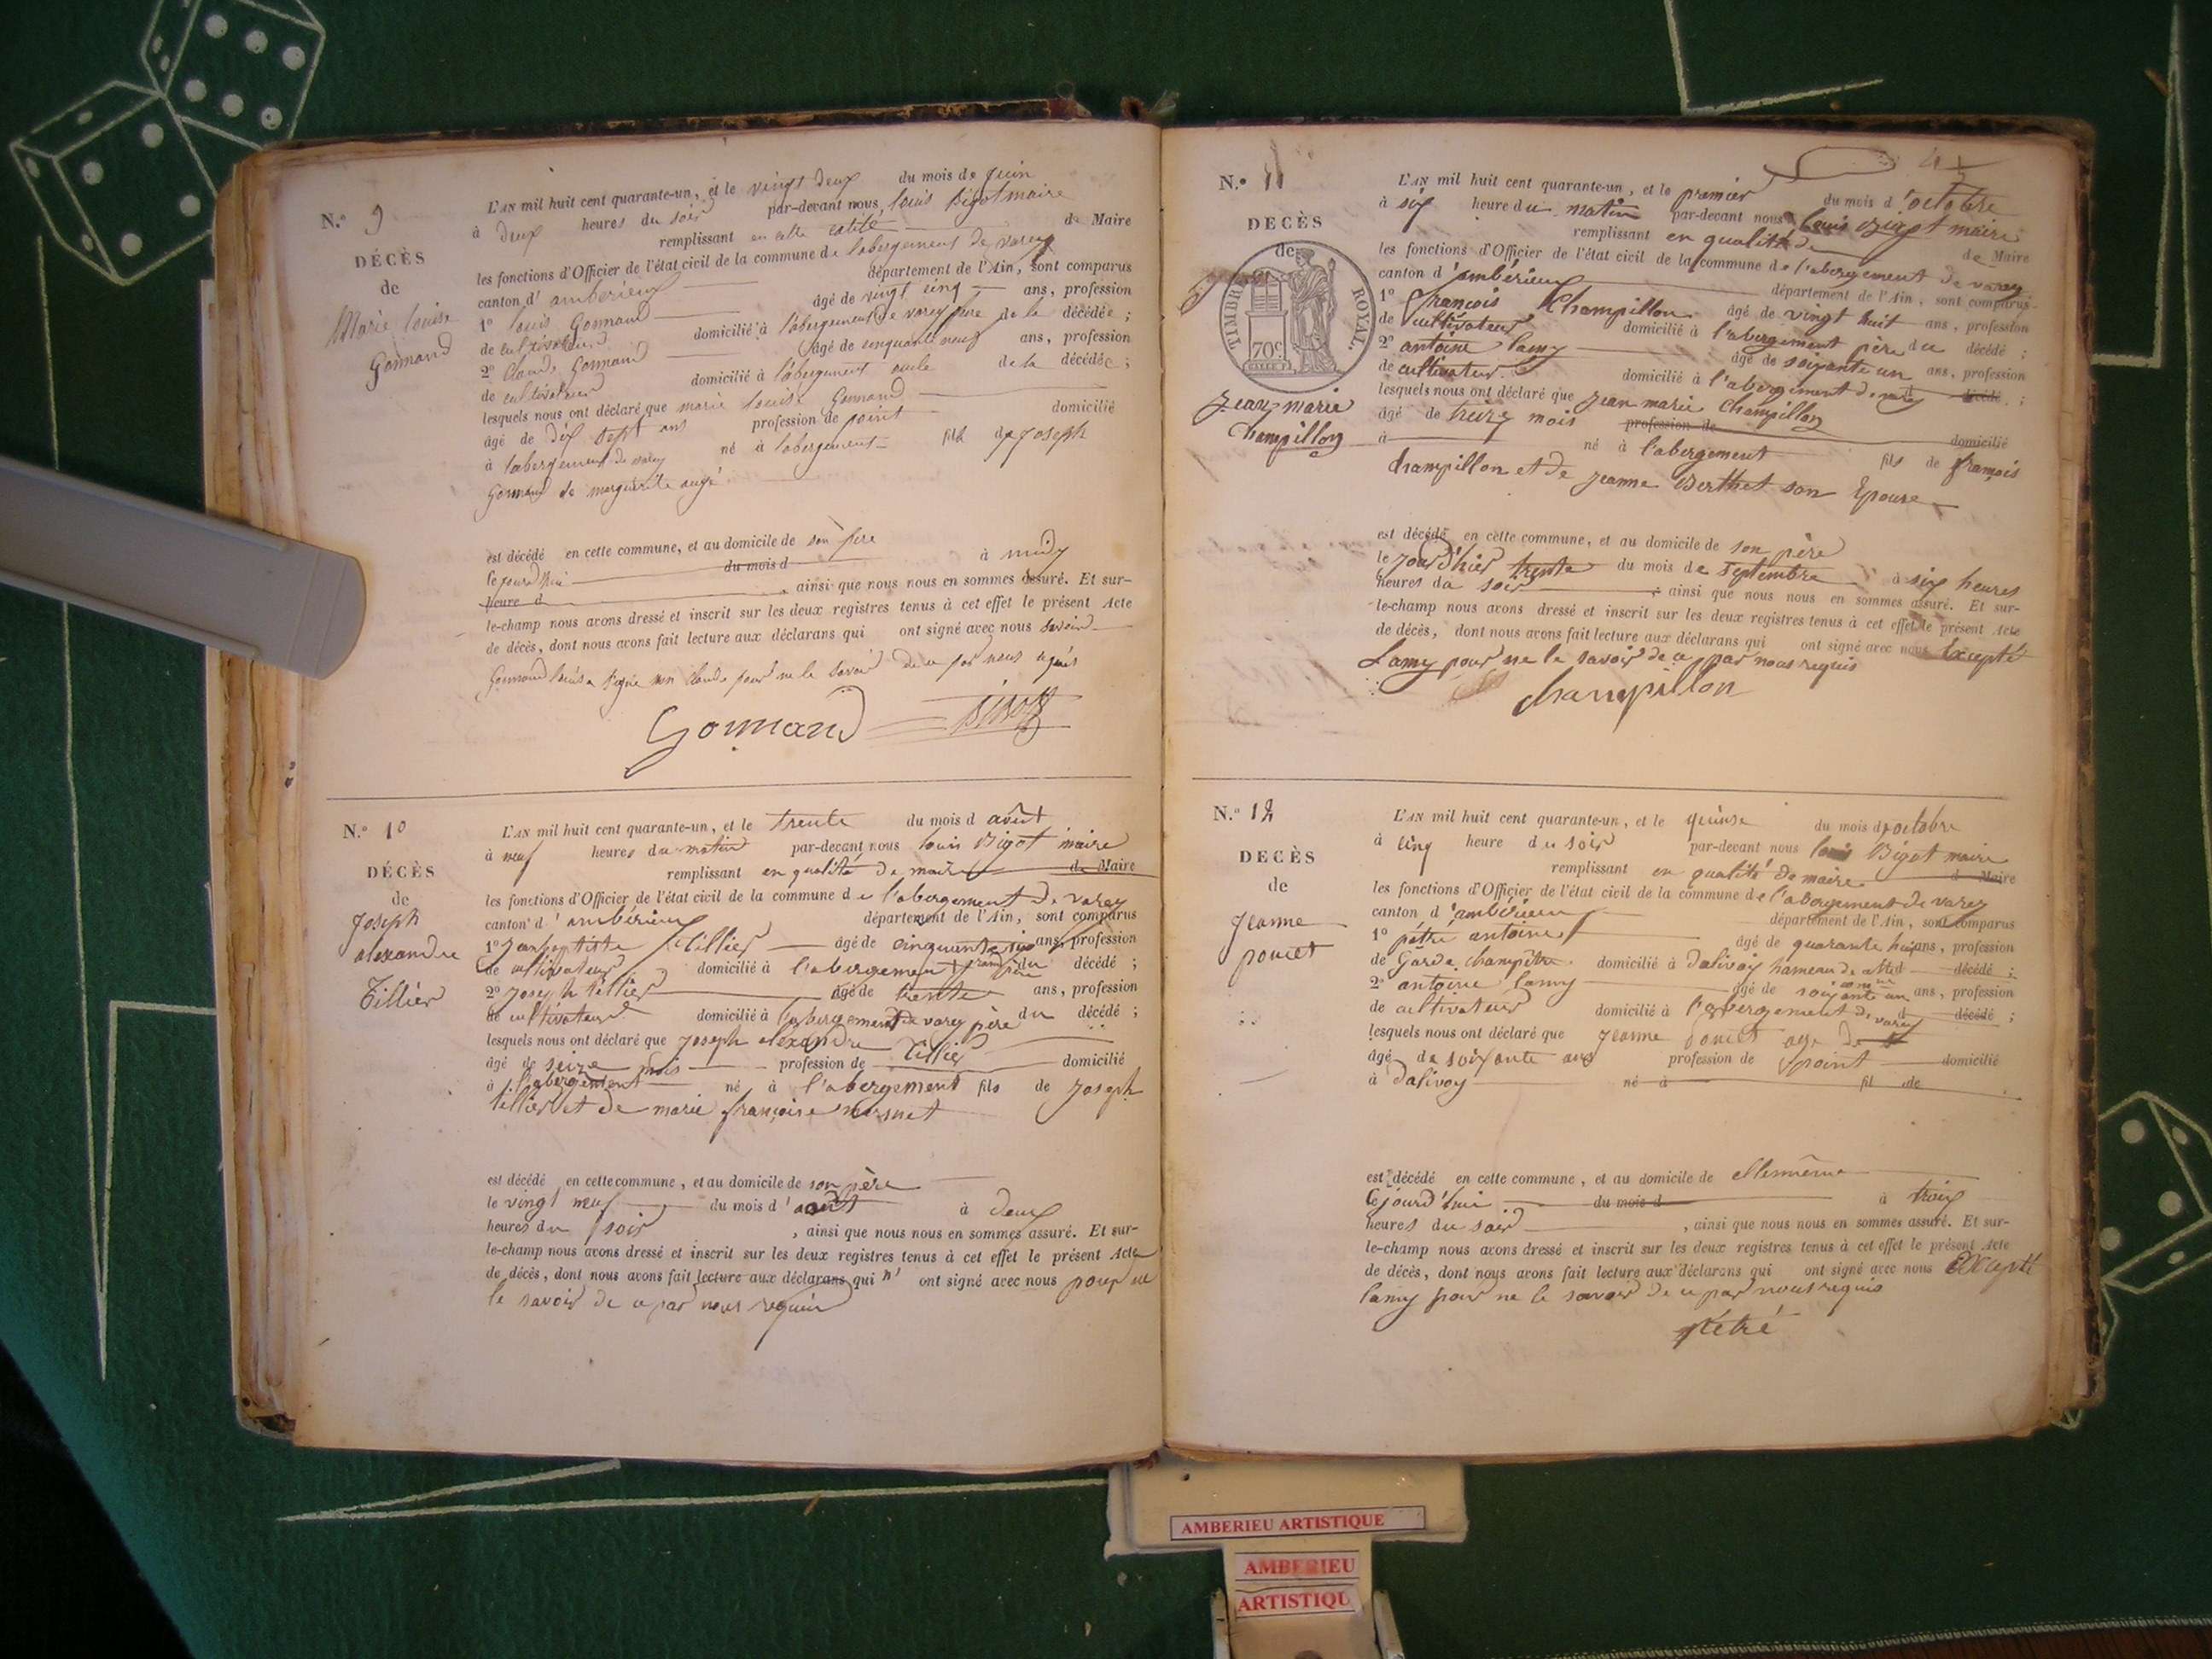 N.° 9
DÉCÈS
de
Marie louise
Gonnand
L'AN mil huit cent quarante-un, et le vingt deux du mois de juin
à deux heures du soir par-devant nous, louis Bigot maire
remplissant en cette calité de Maire
les fonctions d'Officier de l'état civil de la commune de l'abergement de varey
canton d'amberieux département de l'Ain, sont comparus
1° louis Gonnand âgé de vingt cinq ans, profession
de cultivateur domicilié à l'abergement de varey père de la décédée ;
2° Claude Gonnand âgé de cinquante neuf ans, profession
de cultivateur domicilié à l'abergement oncle de la décédée ;
lesquels nous ont déclaré que marie louise Gonnand
âgé de dix sept ans profession de point domicilié
à l'abergement de varey né à l'abergement fill de Joseph
Gonnand de marguerite augé
est décédé en cette commune, et au domicile de son père
le jourd'hui du mois d à midy
heure d , ainsi que nous nous en sommes assuré. Et sur-
le-champ nous avons dressé et inscrit sur les deux registres tenus à cet effet le présent Acte
de décès, dont nous avons fait lecture aux déclarans qui ont signé avec nous savoir
Gonnand louis a signé non Claude pour ne le savoir de ce par nous requis
Gonnand Bigot
N.° 10
DÉCÈS
de
Joseph
alexandre
Tillier
L'AN mil huit cent quarante-un, et le trente du mois d août
à neuf heures du matin par-devant nous louis Bigot maire
remplissant en qualité de maire de Maire
les fonctions d'Officier de l'état civil de la commune de l'abergement de varey
canton d'ambérieux département de l'Ain, sont comparus
1° Jean baptiste tillier âgé de cinquante six ans, profession
de cultivateur domicilié à l'abergement grand père du décédé ;
2° Joseph tillier âgé de trente ans, profession
de cultivateur domicilié à l'abergement de varey père du décédé ;
lesquels nous ont déclaré que Joseph alexandre Tillier
âgé de seize mois profession de domicilié
à l'abergement né à l'abergement fils de Joseph
tillier et de marie françoise
est décédé en cette commune, et au domicile de son père
le vingt neuf du mois d'août à deux
heures du soir , ainsi que nous nous en sommes assuré. Et sur-
le-champ nous avons dressé et inscrit sur les deux registres tenus à cet effet le présent Acte
de décès, dont nous avons fait lecture aux déclarans qui n' ont signé avec nous pour ne
le savoir de ce par nous requis
N.° 11
DECÈS
de
TIMBRE ROYAL.
70c
Jean marie
Champillon
L'AN mil huit cent quarante-un, et le premier du mois d'octobre
à six heure du matin par-devant nous louis Bigot maire
remplissant en qualité de de Maire
les fonctions d'Officier de l'état civil de la commune de l'abergement de varey
canton d'ambérieux département de l'Ain, sont comparus
1° françois Champillon âgé de vingt huit ans, profession
de cultivateur domicilié à l'abergement père du décédé ;
2° antoine lamy âgé de soixante un ans, profession
de cultivateur domicilié à l'abergement de varey d décédé ;
lesquels nous ont déclaré que Jean marie Champillon
âgé de treize mois profession de domicilié
à né à l'abergement fils de françois
Champillon et de jeanne Berthet son Epouse
est décédé en cette commune, et au domicile de son père
le jour d'hier trente du mois de septembre à six heures
heures du soir , ainsi que nous nous en sommes assuré. Et sur-
le-champ nous avons dressé et inscrit sur les deux registres tenus à cet effet le présent Acte
de décès, dont nous avons fait lecture aux déclarans qui ont signé avec nous Excepté
Lamy pour ne le savoir de ce par nous requis
champillon
N.° 12
DECÈS
de
Jeanne
poncet
L'AN mil huit cent quarante-un, et le quinse du mois d'octobre
à cinq heure du soir par-devant nous louis Bigot maire
remplissant en qualité de maire d Maire
les fonctions d'Officier de l'état civil de la commune de l'abergement de varey
canton d'ambérieux département de l'Ain, sont comparus
1° pétré antoine âgé de quarante huit ans, profession
de Garde champêtre domicilié à dalivoy hameau de d décédé ;
2° antoine lamy âgé de soixante un ans, profession
de cultivateur domicilié à l'abergement de varey d décédé ;
lesquels nous ont déclaré que Jeanne poncet age de
âgé de soixante ans profession de point domicilié
à dalivoy né à fil de
est décédé en cette commune, et au domicile de ellemême
le jourd'hui du mois d à trois
heures du soir , ainsi que nous nous en sommes assuré. Et sur-
le-champ nous avons dressé et inscrit sur les deux registres tenus à cet effet le présent Acte
de décès, dont nous avons fait lecture aux déclarans qui ont signé avec nous Excepté
lamy pour ne le savoir de ce par nous requis
pétré
AMBERIEU ARTISTIQUE
AMBERIEU
ARTISTIQU